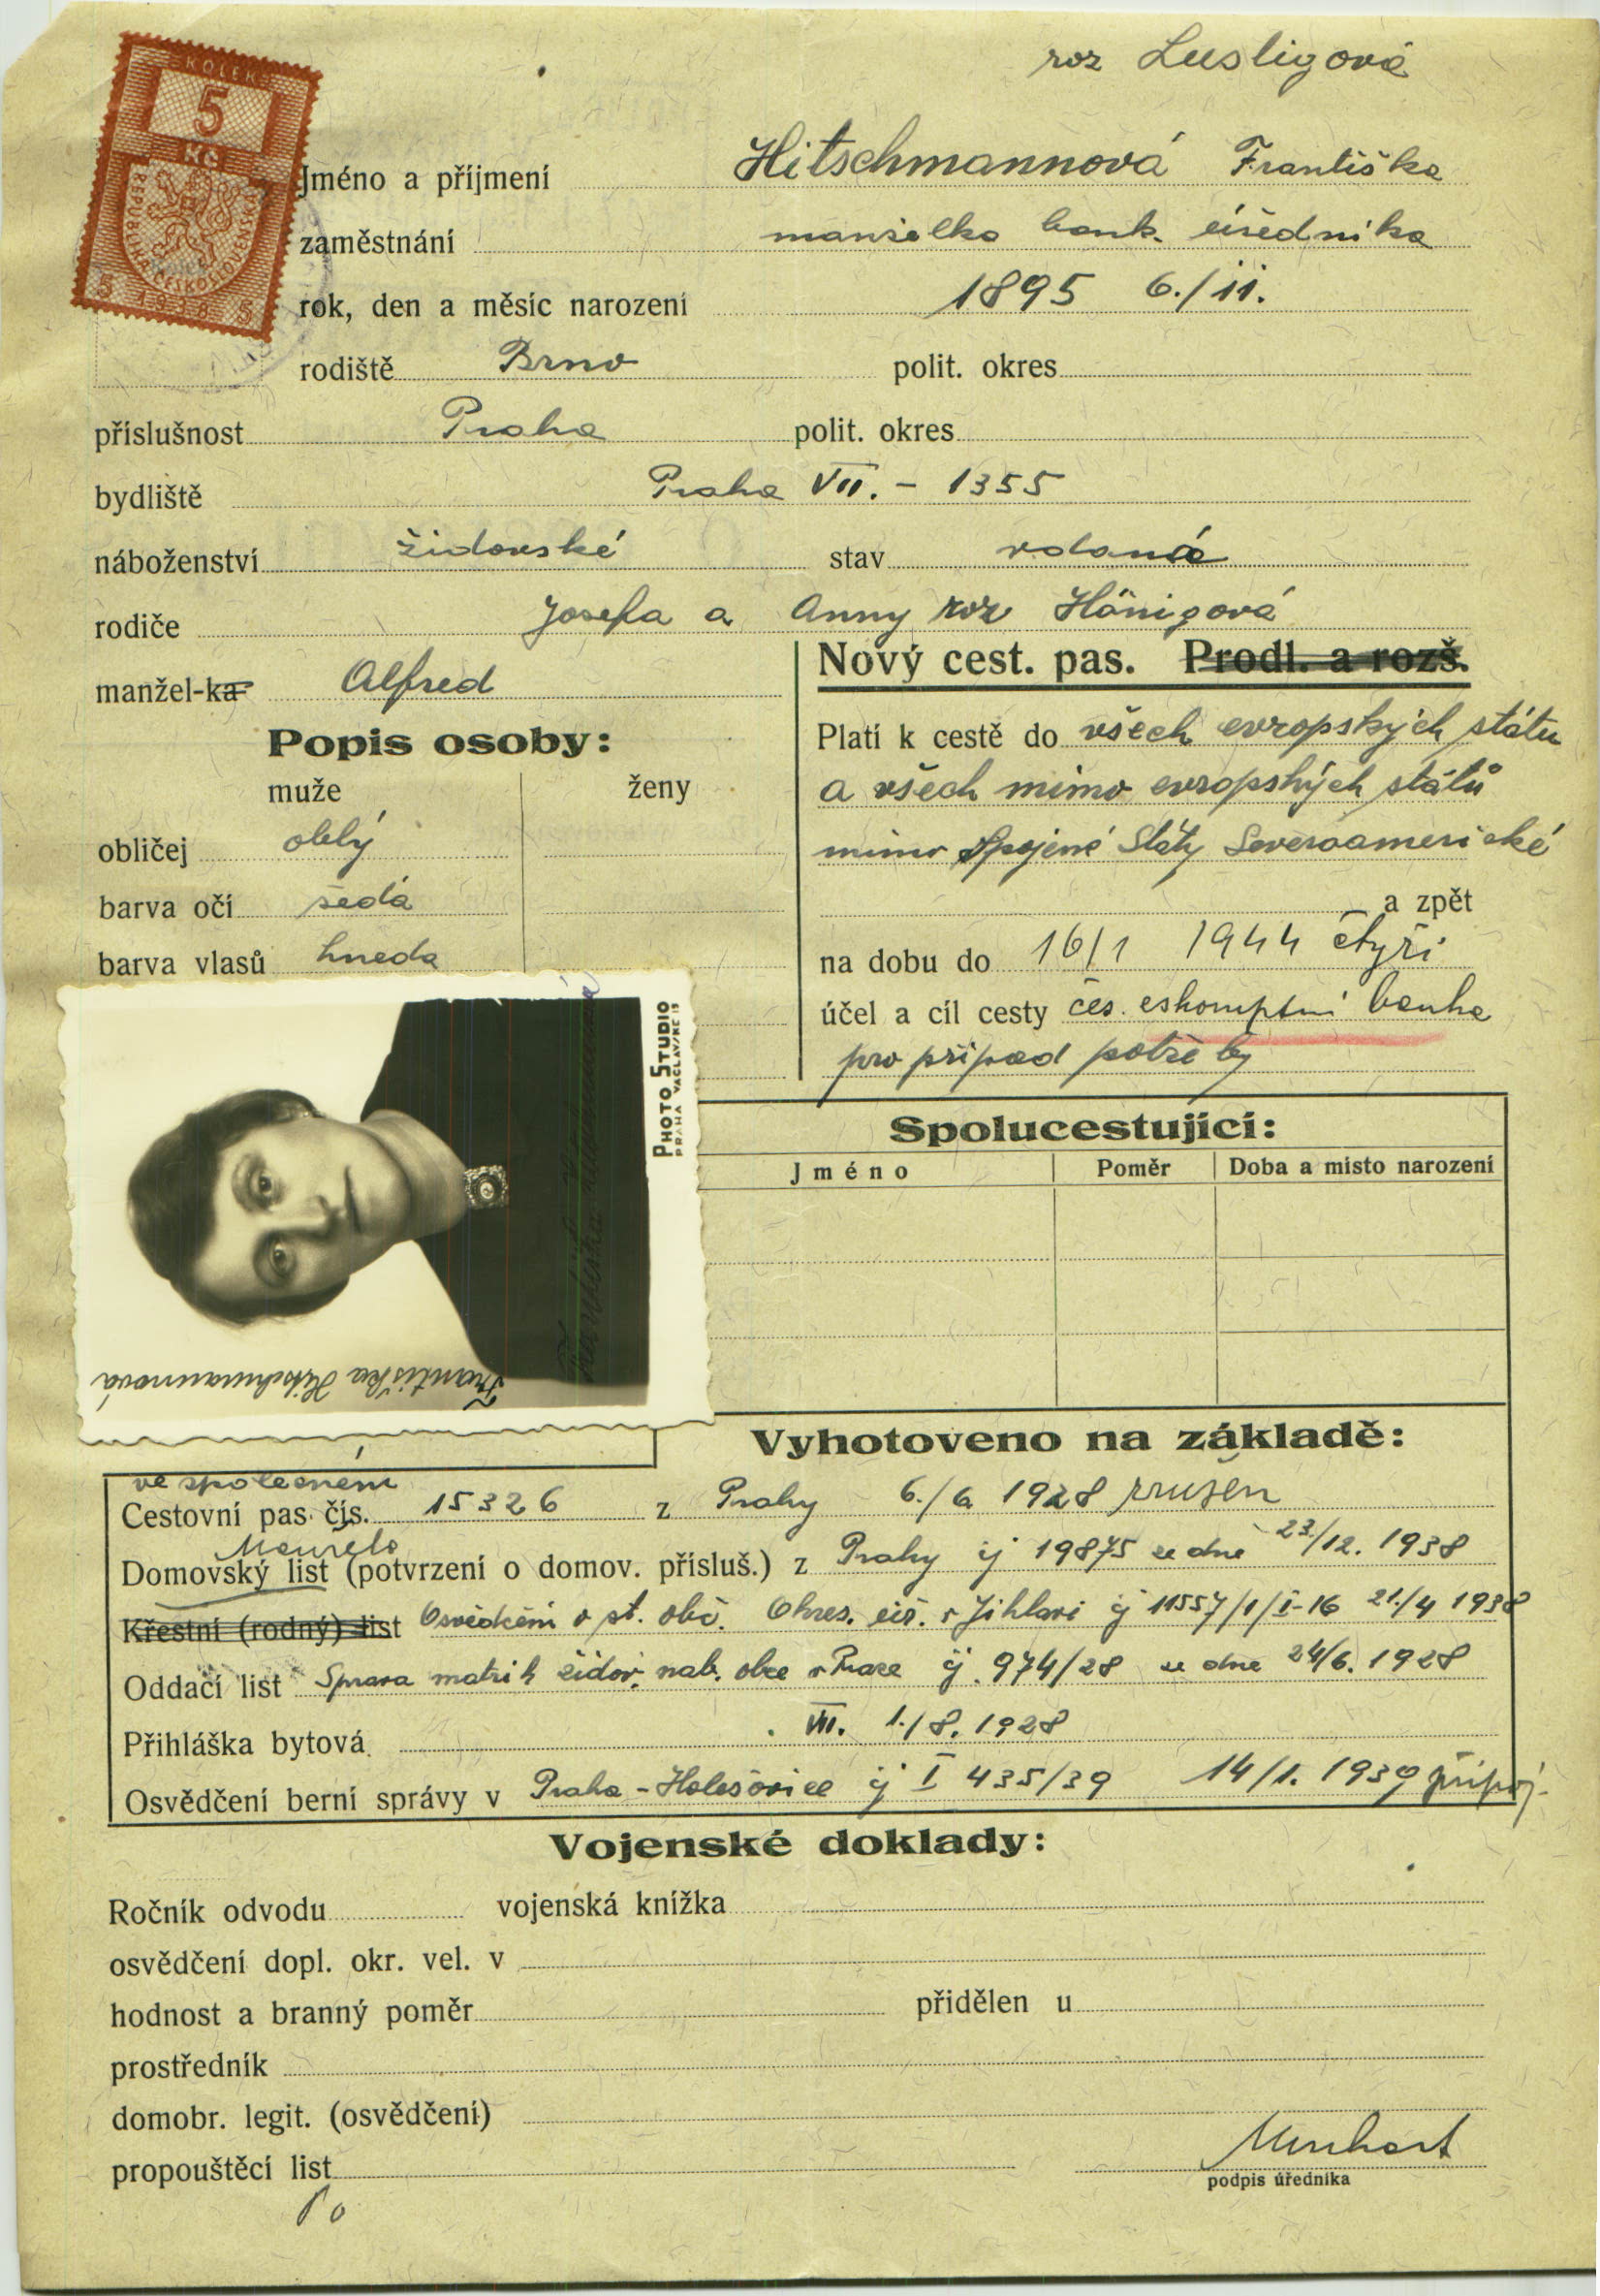 roz Lustigová
KOLEK
5
Kč
REPUBLIKA ČESKOSLOVENSKÁ
5 1938 5
Jméno a příjmení Hitschmannová Františka
zaměstnání manželka bank. úředníka
rok, den a měsíc narození 1895 6./11.
rodiště Brno polit. okres
příslušnost Praha polit. okres
bydliště Praha VII. - 1355
náboženství židovské stav vdaná
rodiče Josefa a Anny roz Hönigová
manžel-ka Alfred
Nový cest. pas. Prodl. a rozš.
Popis osoby:
muže ženy
obličej oblý
barva očí šedá
barva vlasů hneda
Platí k cestě do všech evropských státu
a všech mimo evropských států
mimo Spojené Státy Severoamerické
a zpět
na dobu do 16/1 1944 čtyři
účel a cíl cesty čes. eskomptní banka
pro případ potřeby
PHOTO STUDIO
PRAHA VÁCLAVSKÉ 19
Františka Hitschmannová
Františka Hitschmannová
Spolucestující:
Jméno Poměr Doba a místo narození
Vyhotoveno na základě:
ve společném
Cestovní pas čís. 15326 z Prahy 6./6 1928 zrušen
Manžela
Domovský list (potvrzení o domov. přísluš.) z Prahy čj 19875 ze dne 23./12. 1938
Křestní (rodný) list Osvědčení o st. obč. Okres. úř. v Jihlavi čj 11557/1/I-16 21./4 1938
Oddací list Sprava matrik židov. nab. obce v Praze čj. 974/28 ze dne 24/6. 1928
Přihláška bytová VII. 1./8. 1928
Osvědčení berní správy v Praha-Holešovice čj I 435/39 14/1. 1939 připoj.
Vojenské doklady:
Ročník odvodu vojenská knížka
osvědčení dopl. okr. vel. v
hodnost a branný poměr přidělen u
prostředník
domobr. legit. (osvědčení)
propouštěcí list
podpis úředníka